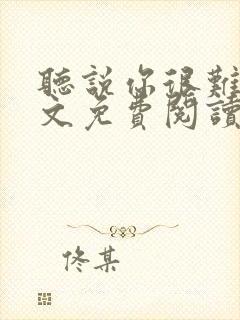 聽說你很難
文免費閱讀
佟某